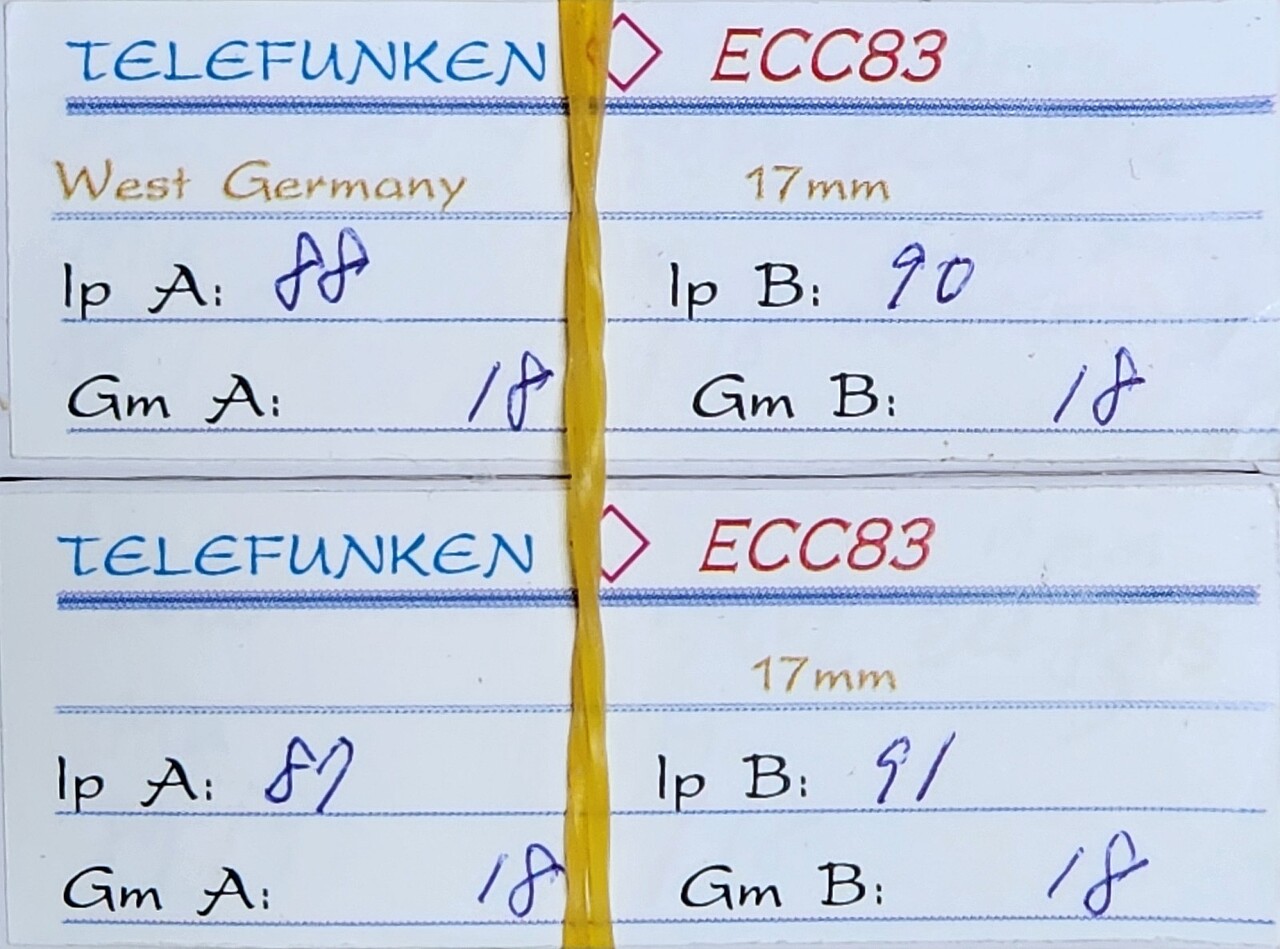 TELEFUNKEN ECC83
West Germany 17mm
Ip A: 88 Ip B: 90
Gm A: 18 Gm B: 18
TELEFUNKEN ECC83
17mm
Ip A: 87 Ip B: 91
Gm A: 18 Gm B: 18